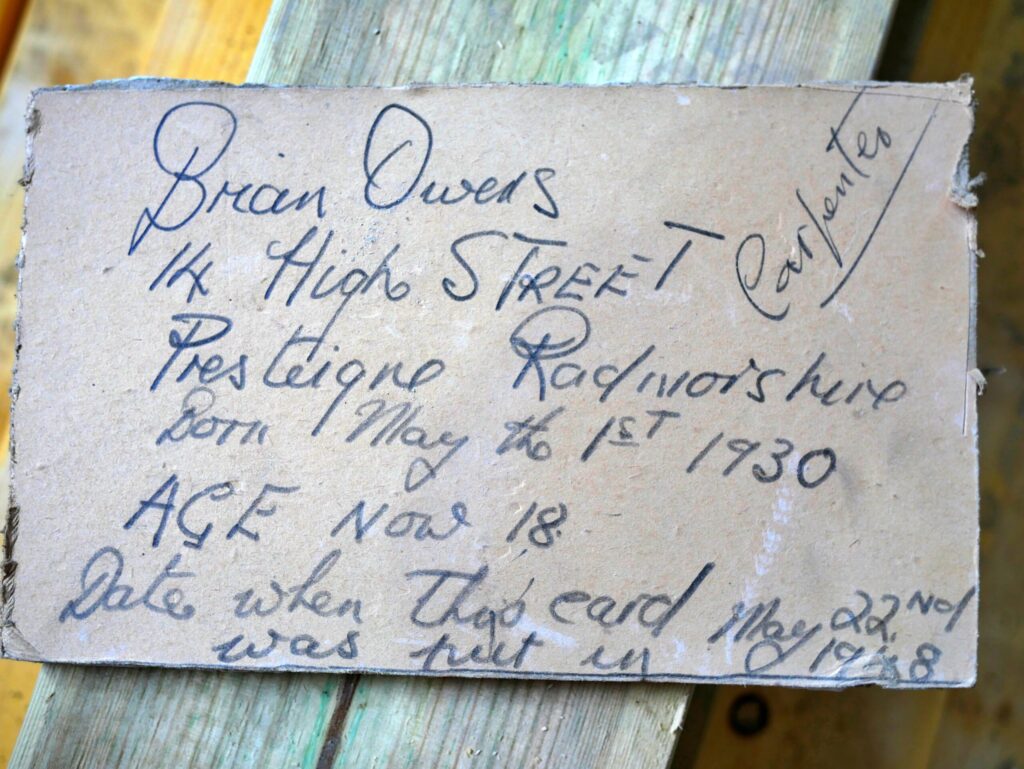 Brian Owens
Carpenter
14 High STREET
Presteigne Radnorshire
Born May the 1ST 1930
AGE NOW 18.
Date when This card May 22Nd
was put in 1948